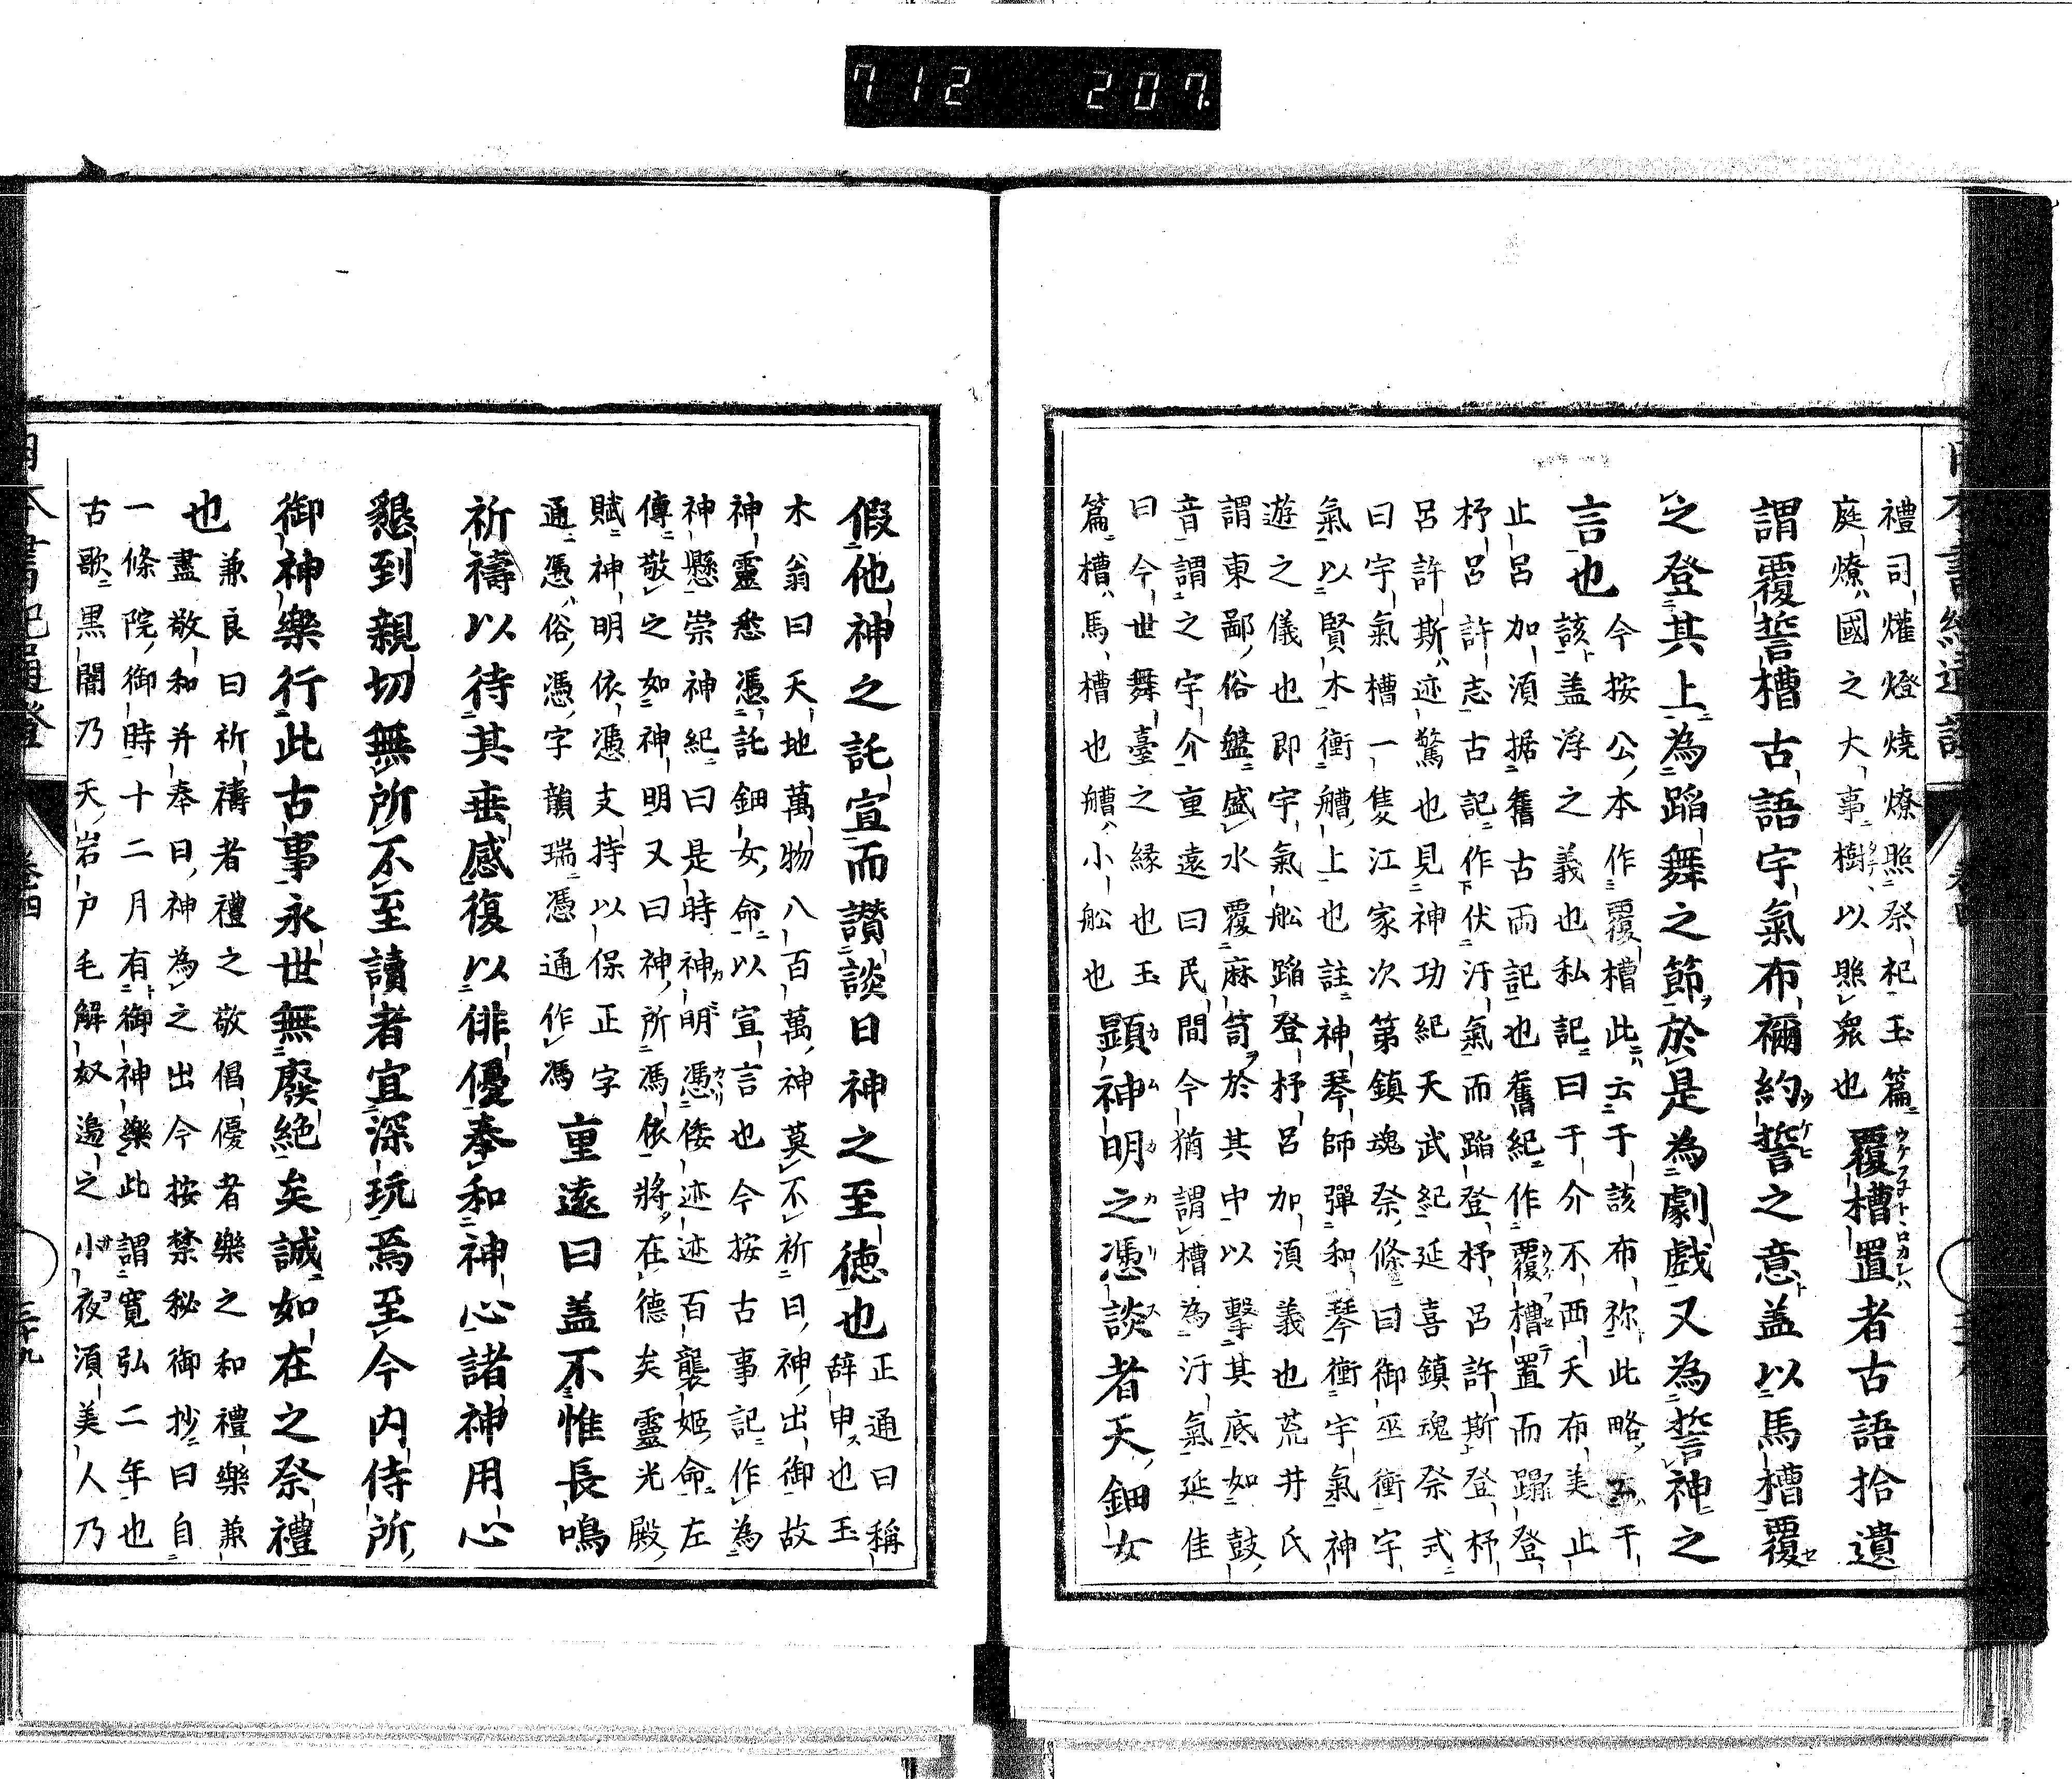 712 207.
禮司爟燈燒燎照祭祀玉篇
庭燎國之大事樹以照衆也
覆槽置者古語拾遺
謂覆誓槽古語宇氣布禰約誓之意盖以馬槽覆
之登其上為蹈舞之節於是為劇戲又為誓神之
言也
今按公本作覆槽此云于該布祢此略于
該盖浮之義也私記曰于介不西天布美止
止呂加湏据舊古両記也舊紀作覆槽置而蹋登
杼呂許志古記作伏汙氣而蹈登杼呂許斯登杼
呂許斯迹驚也見神功紀天武紀延喜鎮魂祭式
曰宇氣槽一隻江家次第鎮魂祭條曰御巫衝宇
氣以賢木衝艚上也註神琴師彈和琴衝宇氣神
遊之儀也即宇氣舩蹈登杼呂加湏義也荒井氏
謂東鄙俗盤盛水覆麻笥於其中以擊其底如鼓
音謂之宇介重遠曰民間今猶謂槽為汙氣延佳
曰今世舞臺之縁也玉
篇槽馬槽也艚小舩也
顕神明之憑談者天鈿女
假他神之託宣而讃談日神之至徳也
正通曰稱
辞申也玉
木翁曰天地萬物八百萬神莫不祈日神出御故
神靈愁憑託鈿女命以宣言也今按古事記作為
神懸崇神紀曰是時神明憑倭迹迹百襲姫命左
傳敬之如神明又曰神所馮依將在德矣靈光殿
賦神明依憑支持以保正字
通憑俗憑字韻瑞憑通作馮
重遠曰盖不惟長鳴
祈禱以待其垂感復以俳優奉和神心諸神用心
懇到親切無所不至讀者宜深玩焉至今内侍所
御神樂行此古事永世無廢絶矣誠如在之祭禮
也
兼良曰祈禱者禮之敬倡優者樂之和禮樂兼
盡敬和并奉日神為之出今按禁秘御抄曰自
一條院御時十二月有御神樂此謂寛弘二年也
古歌黒闇乃天岩户毛解奴邉之小夜湏美人乃